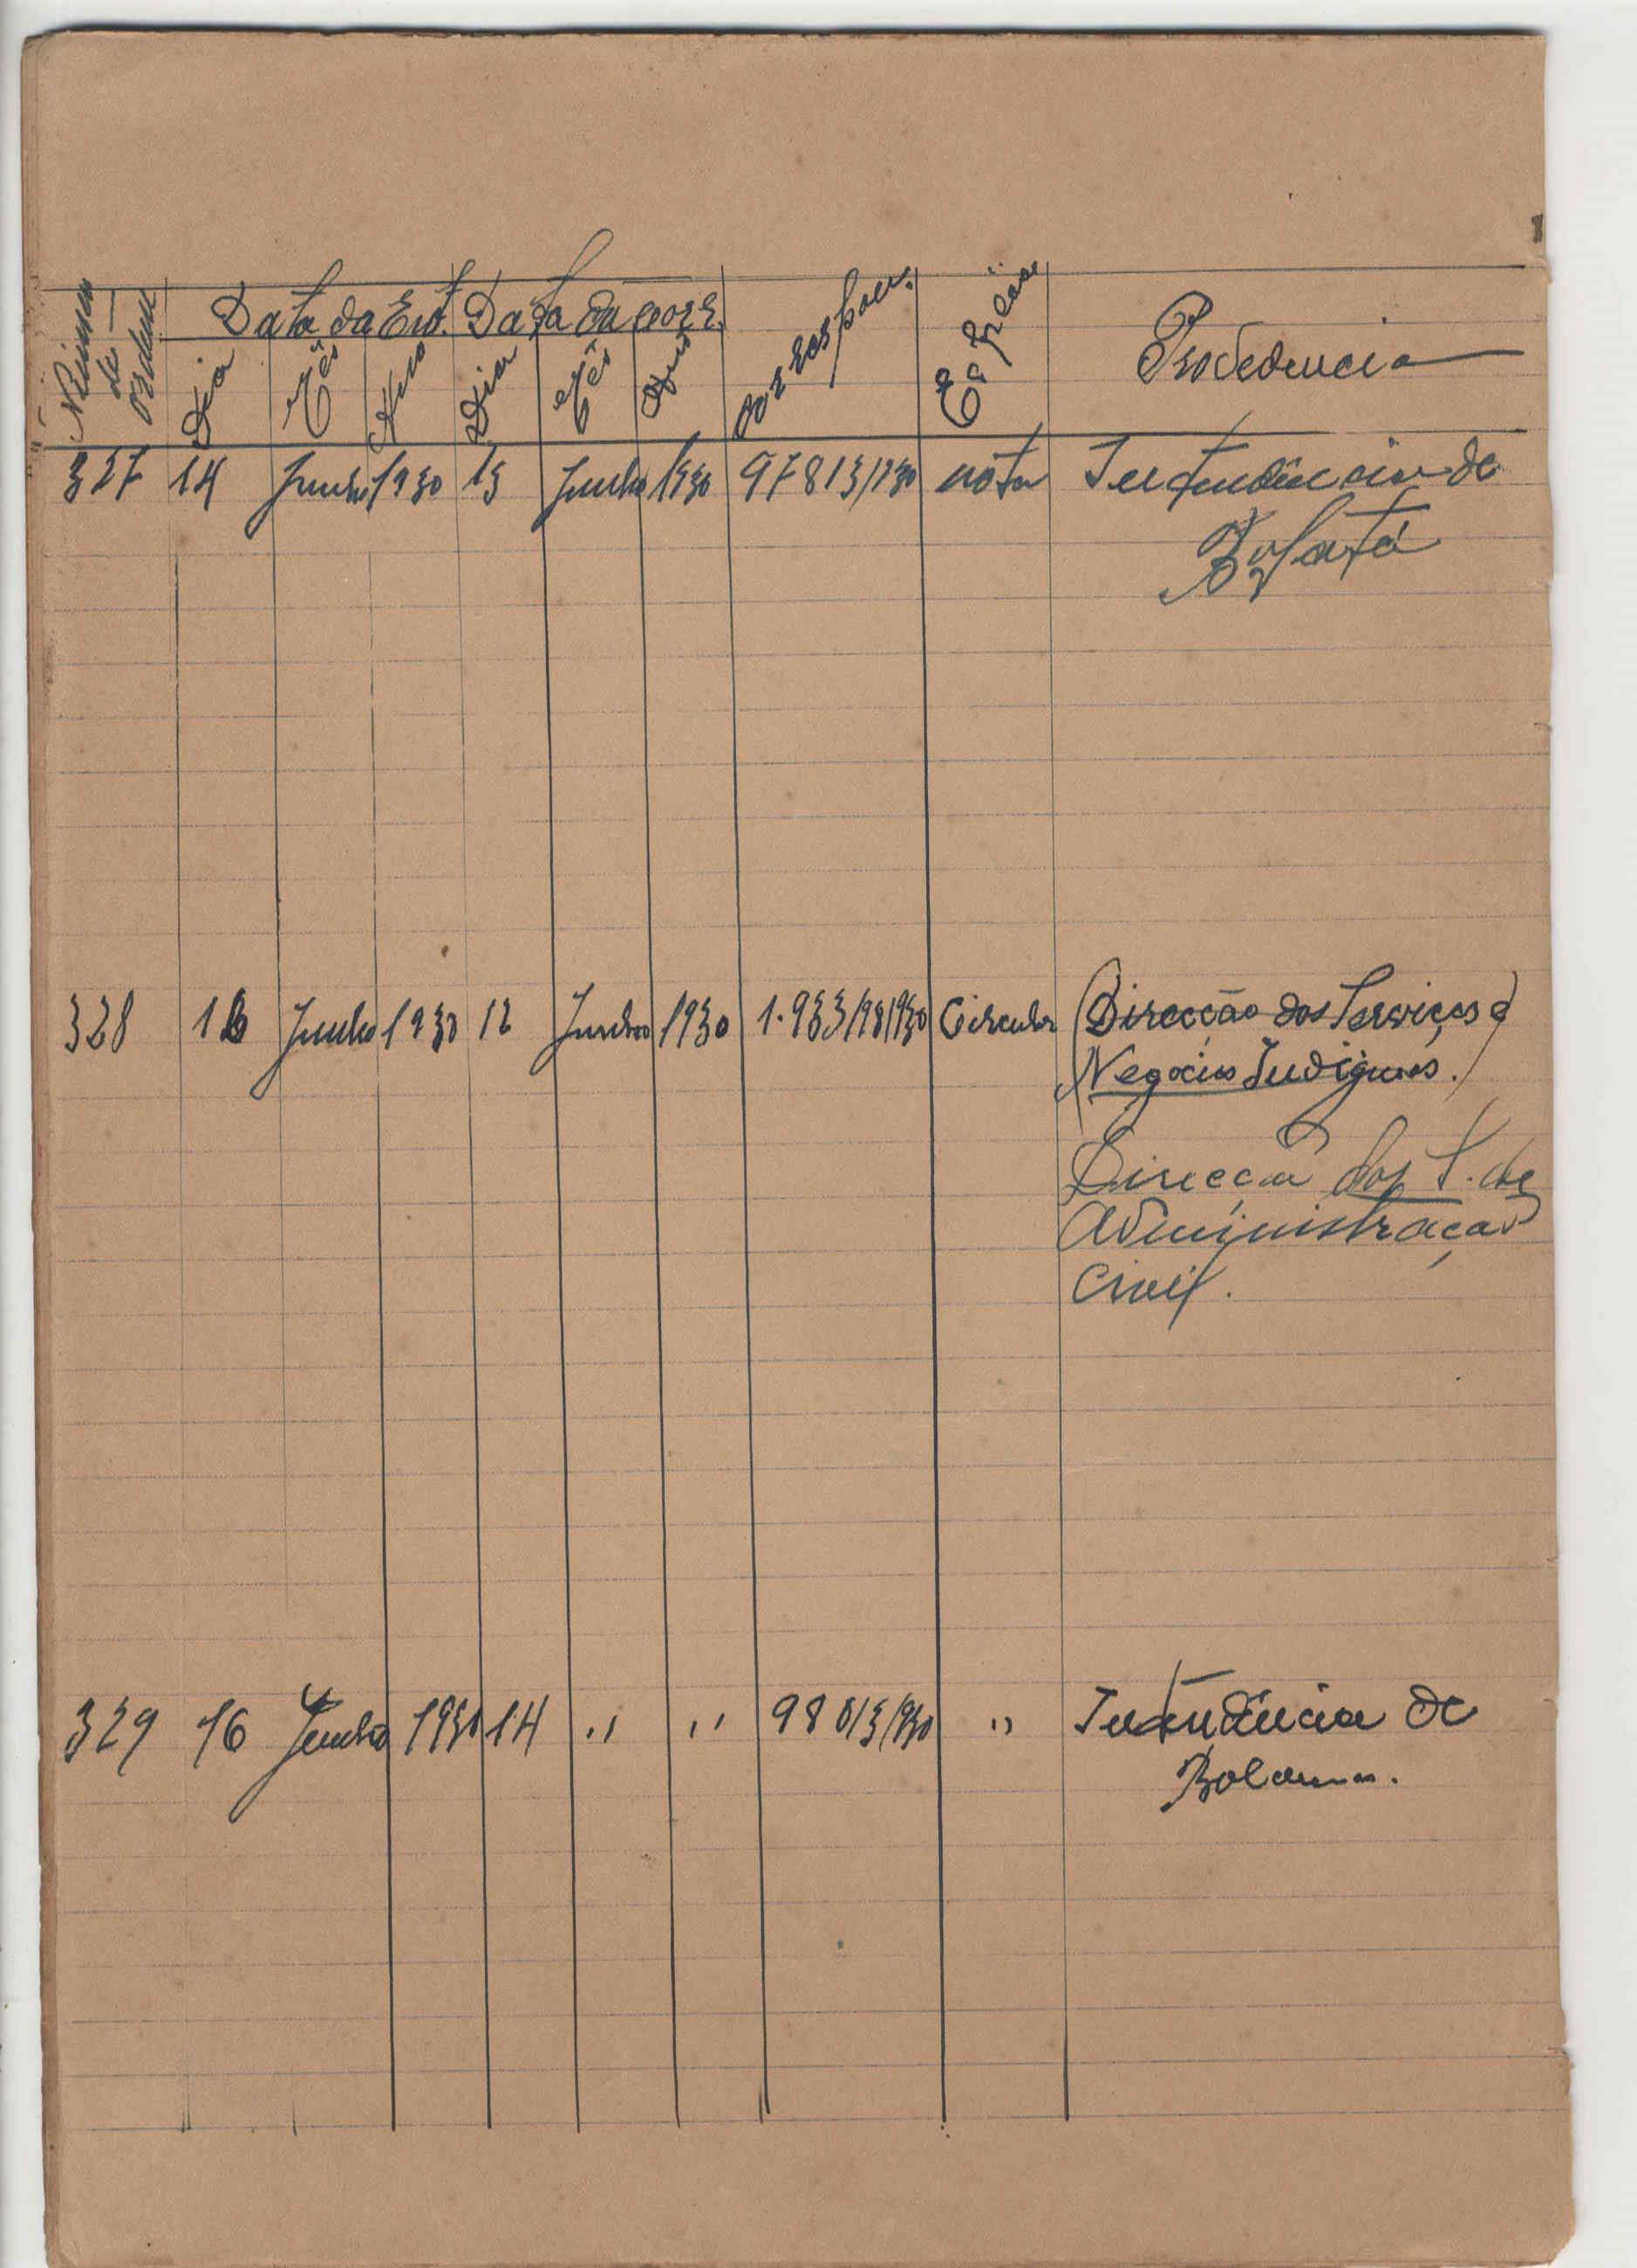 1
Numero de ordem
Data da Ent. Data da corr.
Dia Mês Ano Dia Mês Ano
Procedencia
327 14 Junho 1930 13 Junho 1930 978/3/930 nóta Intendência de
Bafatá
328 16 Junho 1930 12 Junho 1930 1.933/98/930 Circular (Direcção dos Serviços e
Negocios Indigenas.)
Direcção dos S. de
Administração
Civil.
329 16 Junho 1930 14 " " 980/3/930 " Intendência de
Bolama.